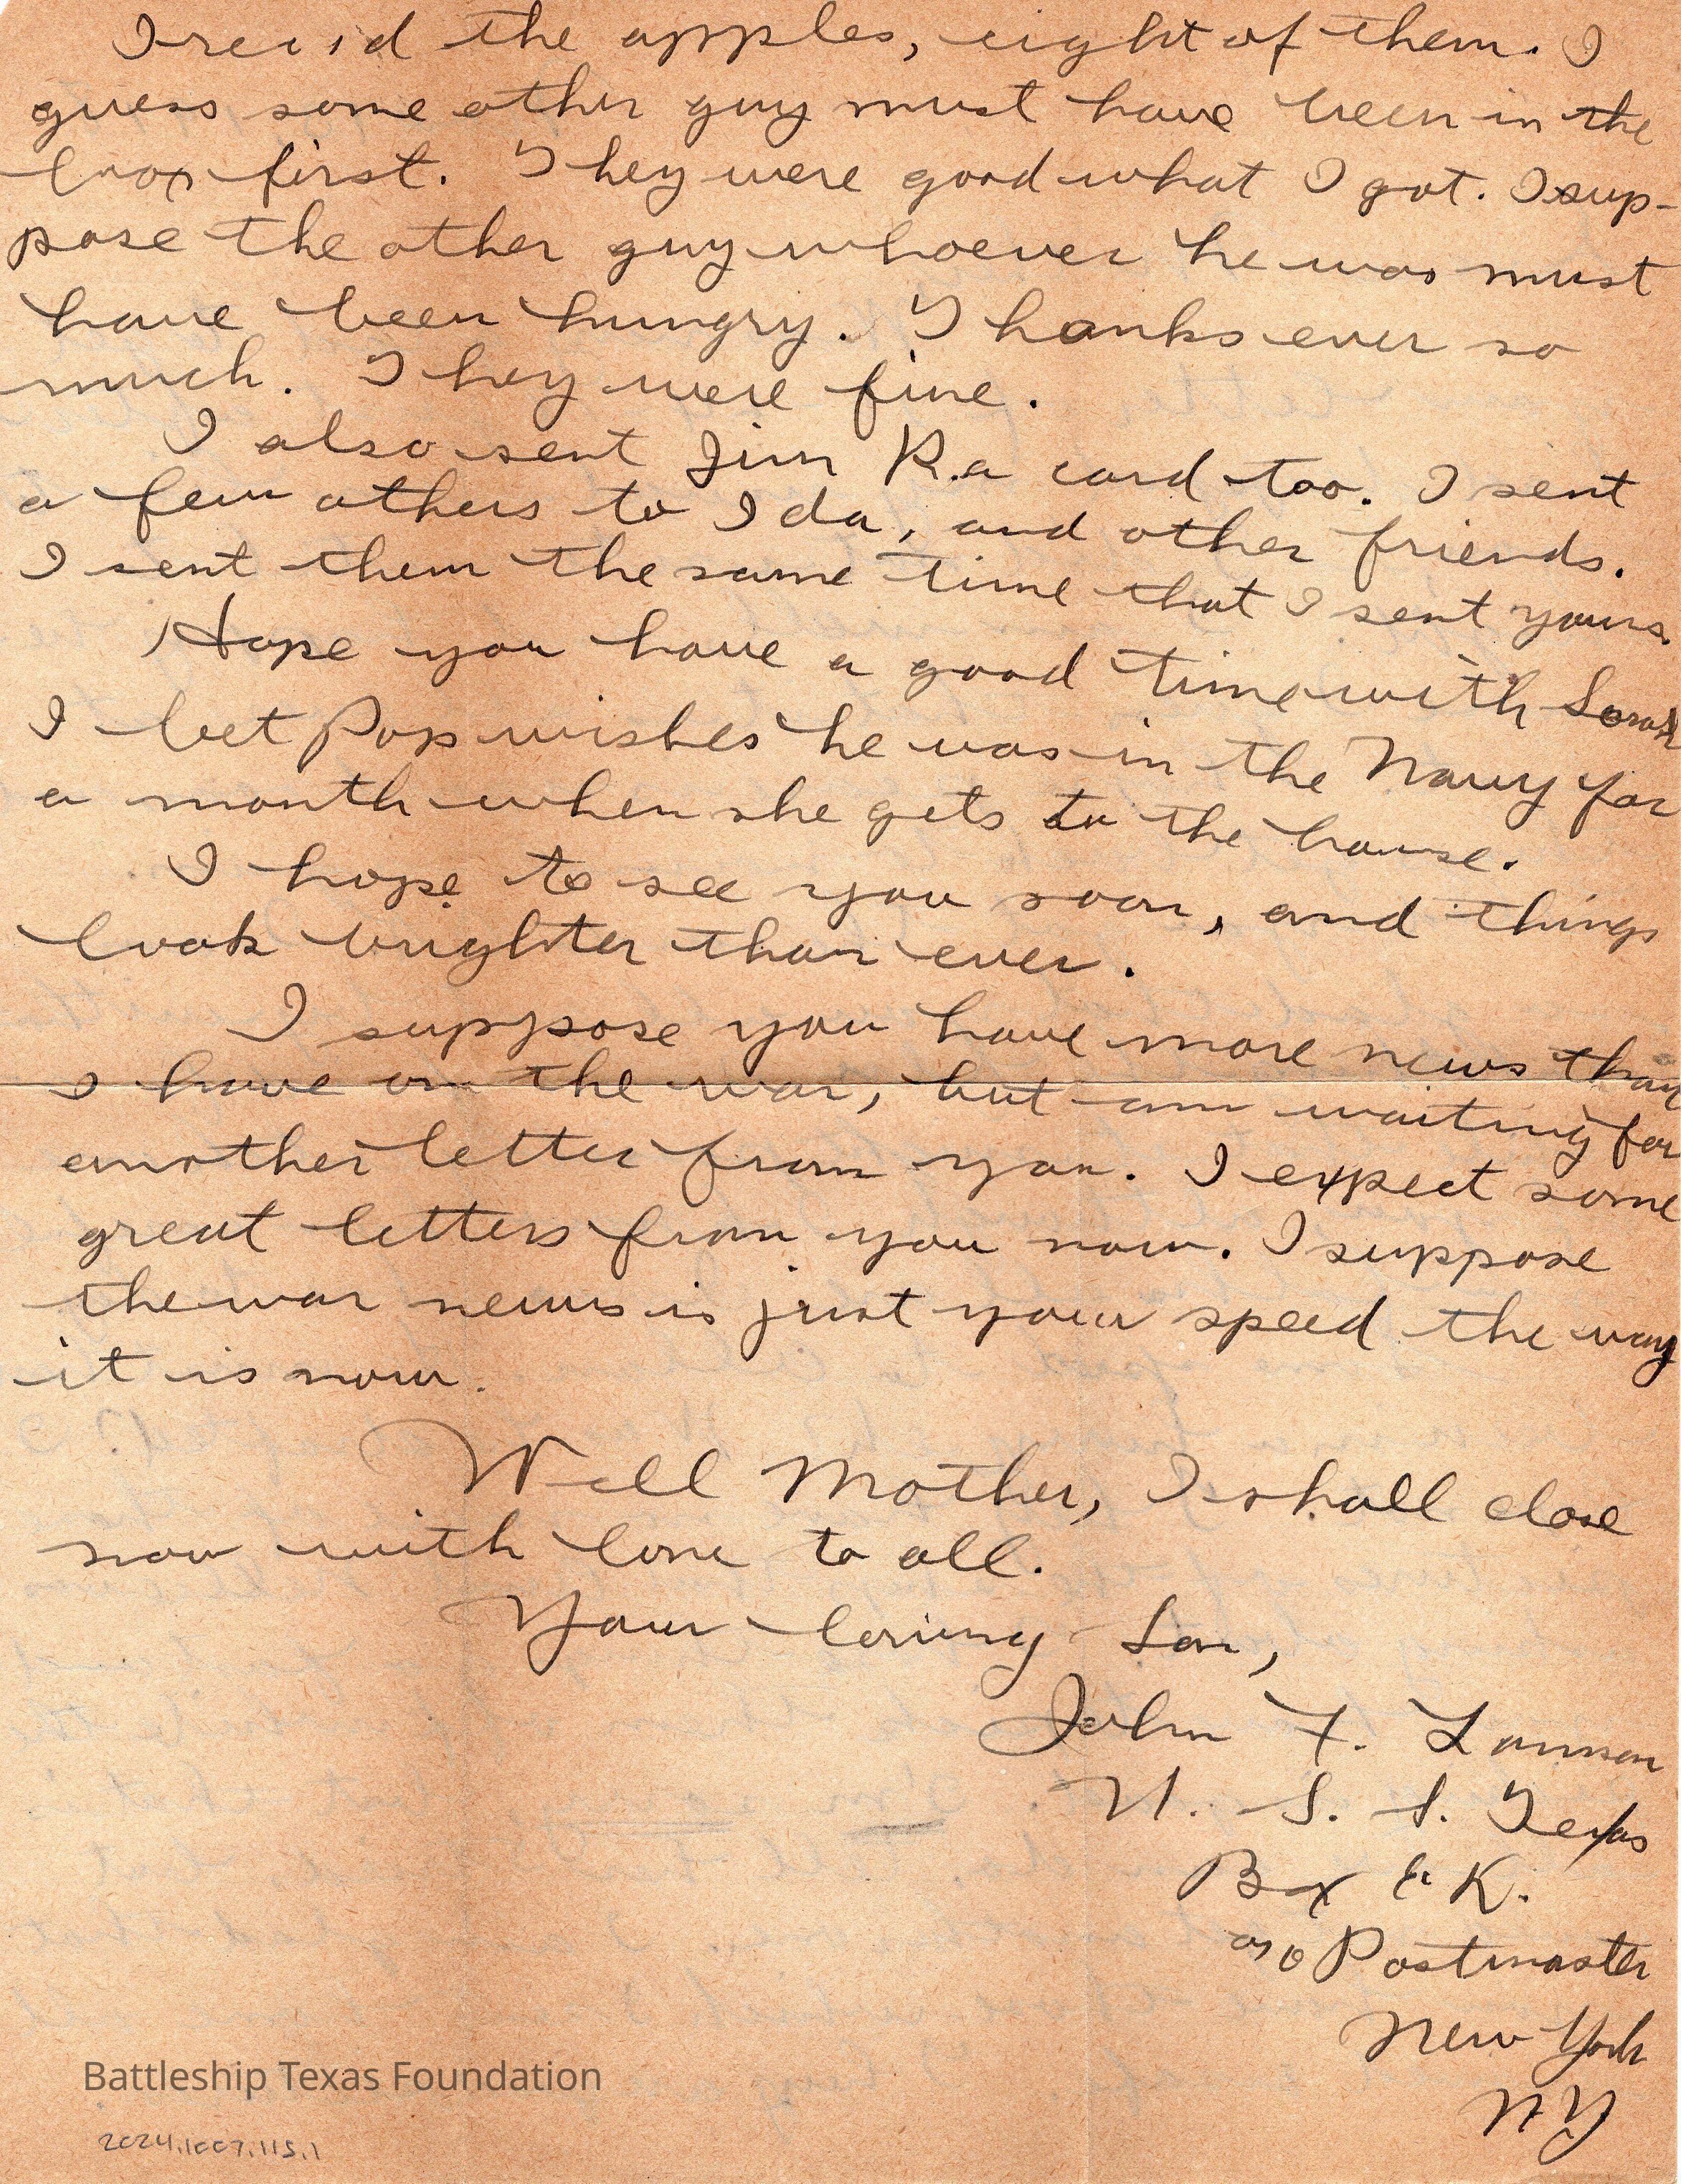 I rec'd the apples, eight of them. I
guess some other guy must have been in the
box first. They were good what I got. I sup-
pose the other guy whoever he was must
have been hungry. Thanks ever so
much. They were fine.
I also sent Jim R. a card too. I sent
a few others to Ida, and other friends.
I sent them the same time that I sent yours.
Hope you have a good time with Sarah
I bet Pop wishes he was in the Navy for
a month when she gets to the house.
I hope to see you soon, and things
look brighter than ever.
I suppose you have more news than
I have on the war, but am waiting for
another letter from you. I expect some
great letters from you now. I suppose
the war news is just your speed the way
it is now.
Well Mother, I shall close
now with love to all.
Your loving Son,
John F. Lannan
U. S. S. Texas
Bx K.
c/o Postmaster
New York
NY
Battleship Texas Foundation
2024.1007.115.1